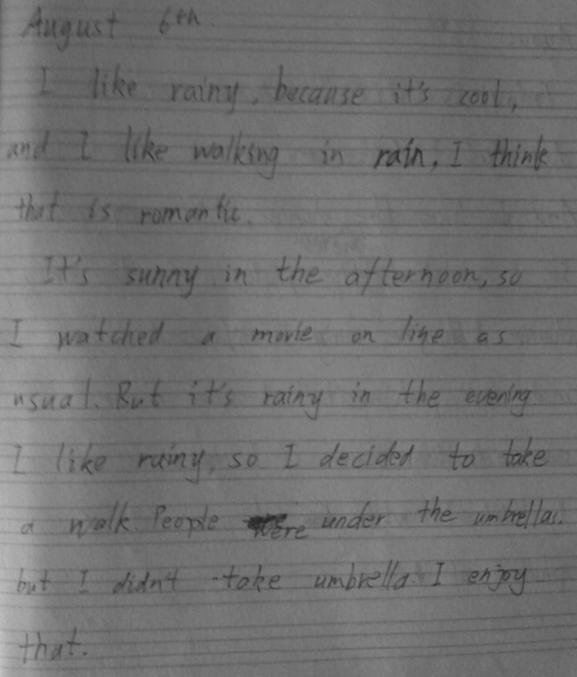 August 6th.
I like rainy, because it's cool,
and I like walking in rain, I think
that is romantic.
It's sunny in the afternoon, so
I watched a movie on line as
usual. But it's rainy in the evening
I like rainy, so I decided to take
a walk. People were under the umbrellas.
but I didn't take umbrella. I enjoy
that.